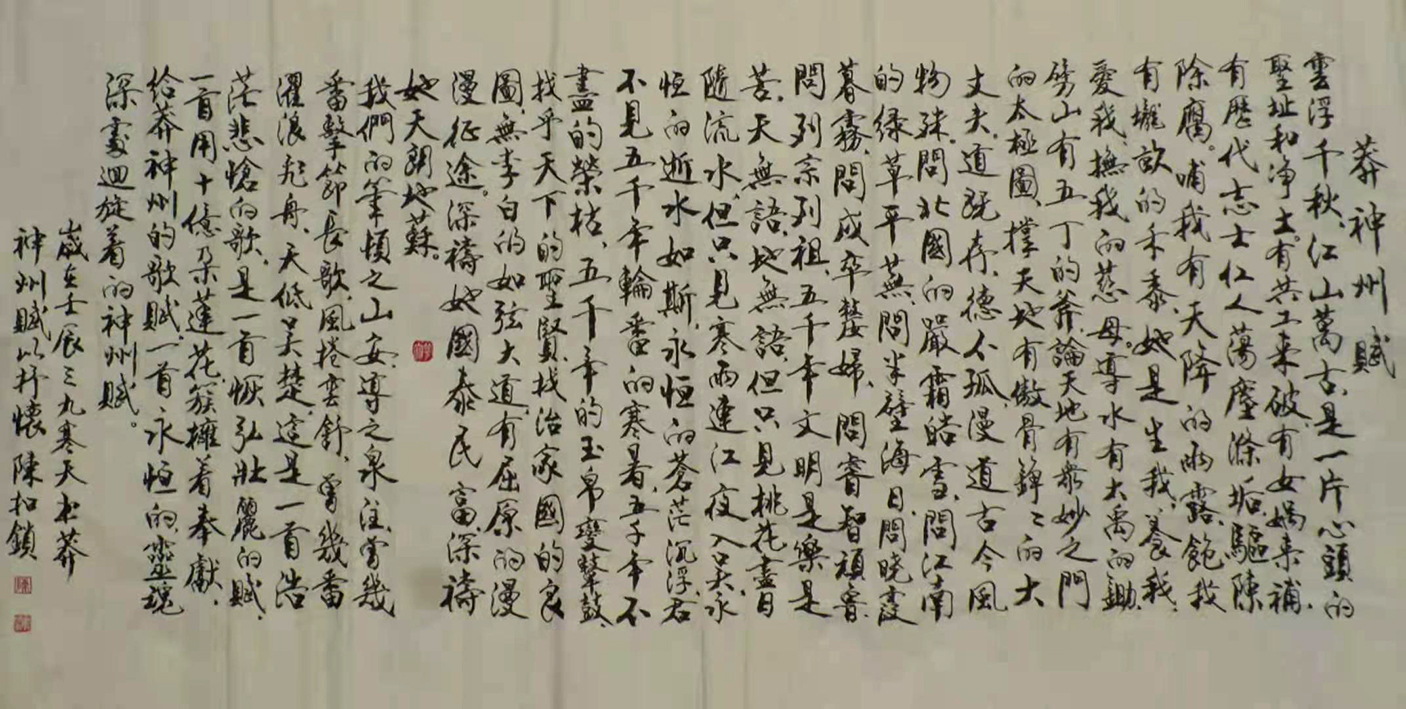 莽神州賦
雲浮千秋、江山萬古、是一片心頭的
聖址和净土。有共工來破、有女媧來補、
有歷代志士仁人蕩塵滌垢、驅陳
除腐。哺我有天降的雨露、飽我
有壠畝的禾黍、她是生我、養我、
愛我、撫我的慈母。導水有大禹的鋤、
劈山有五丁的斧、論天地有衆妙之門
的太極圖、撑天地有傲骨錚々的大
丈夫。道既存、德不孤、漫道古今風
物殊。問北國的嚴霜皓雪、問江南
的绿草平蕪、問半壁海日、問晚霞
暮霧、問戍卒嫠婦、問睿智頑魯、
問列宗列祖、五千年文明是樂是
苦。天無語、地無語、但只見桃花盡日
隨流水、但只見寒雨連江夜入吴、永
恒的逝水如斯、永恒的蒼茫沉浮。君
不見五千年輪番的寒暑、五千年不
盡的榮枯、五千年的玉帛鼙鼓、
找乎天下的聖賢、找治家國的良
圖、無李白的如弦大道、有屈原的漫
漫征途。深禱她國泰民富、深禱
她天朗地蘇。
我們的筆頓之山安、導之泉注、曾幾
番擊節長歌、風捲雲舒、曾幾番
濯浪飛舟、天低吴楚、這是一首浩
茫悲愴的歌、是一首恢弘壯麗的賦、
一首用十億朵蓮花簇擁着奉獻、
給莽神州的歌賦、一首永恒的、靈魂
深處迴旋着的神州賦。
歲在壬辰三九寒天書莽
神州賦以抒懷 陳扣鎖